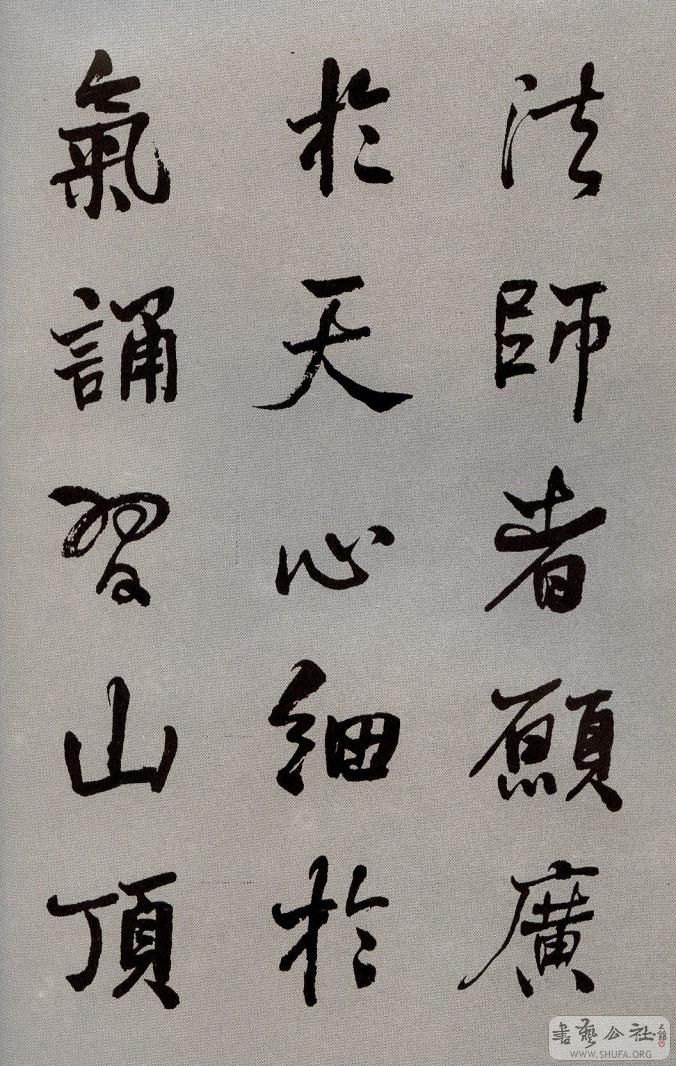 法師者願廣
於天心細於
氣誦習山頂
書藝公社
WWW.SHUFA.ORG